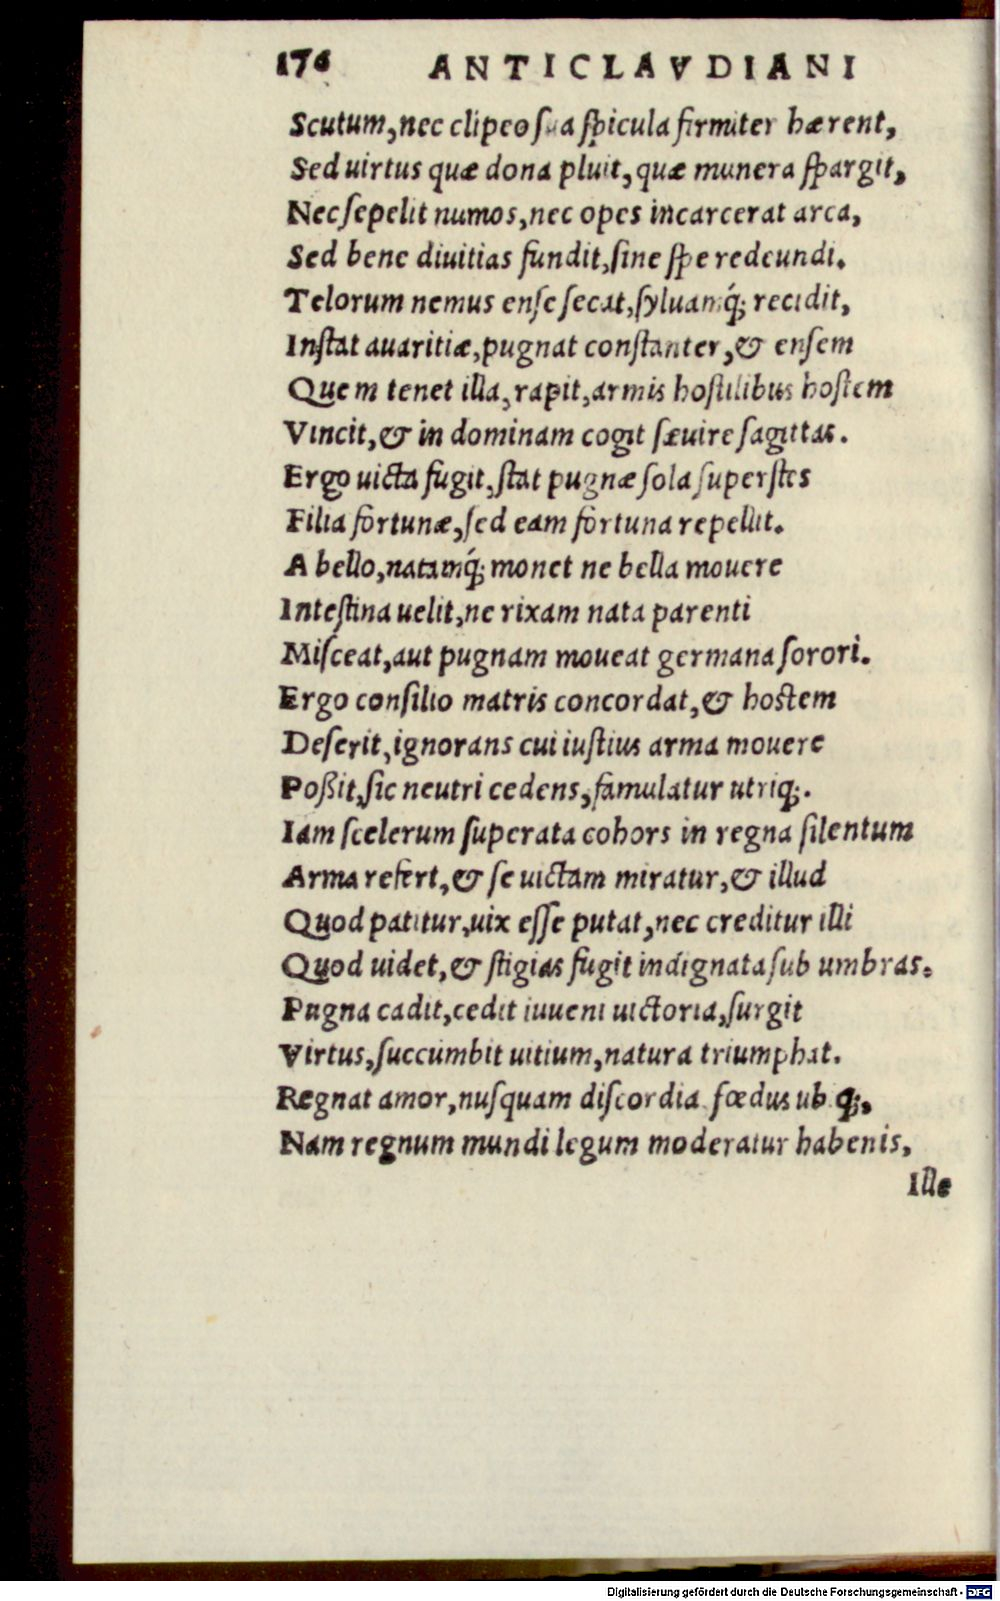 176 ANTICLAVDIANI
Scutum, nec clipeo ſua ſpicula firmiter hærent,
Sed uirtus quæ dona pluit, quæ munera ſpargit,
Nec ſepelit numos, nec opes incarcerat arca,
Sed bene diuitias fundit, ſine ſpe redeundi.
Telorum nemus enſe ſecat, ſyluamq́; recidit,
Inſtat auaritiæ, pugnat conſtanter, & enſem
Quem tenet illa, rapit, armis hoſtilibus hoſtem
Vincit, & in dominam cogit ſæuire ſagittas.
Ergo uicta fugit, ſtat pugnæ ſola ſuperſtes
Filia fortunæ, ſed eam fortuna repellit.
A bello, natamq́; monet ne bella mouere
Inteſtina uelit, ne rixam nata parenti
Miſceat, aut pugnam moueat germana ſorori.
Ergo conſilio matris concordat, & hostem
Deſerit, ignorans cui iuſtius arma mouere
Poßit, ſic neutri cedens, famulatur utriq;.
Iam ſcelerum ſuperata cohors in regna ſilentum
Arma refert, & ſe uictam miratur, & illud
Quod patitur, uix eſſe putat, nec creditur illi
Quod uidet, & ſtigias fugit indignata ſub umbras.
Pugna cadit, cedit iuueni uictoria, ſurgit
Virtus, ſuccumbit uitium, natura triumphat.
Regnat amor, nuſquam diſcordia fœdus ubiq;,
Nam regnum mundi legum moderatur habenis,
Ille
Digitalisierung gefördert durch die Deutsche Forschungsgemeinschaft - DFG